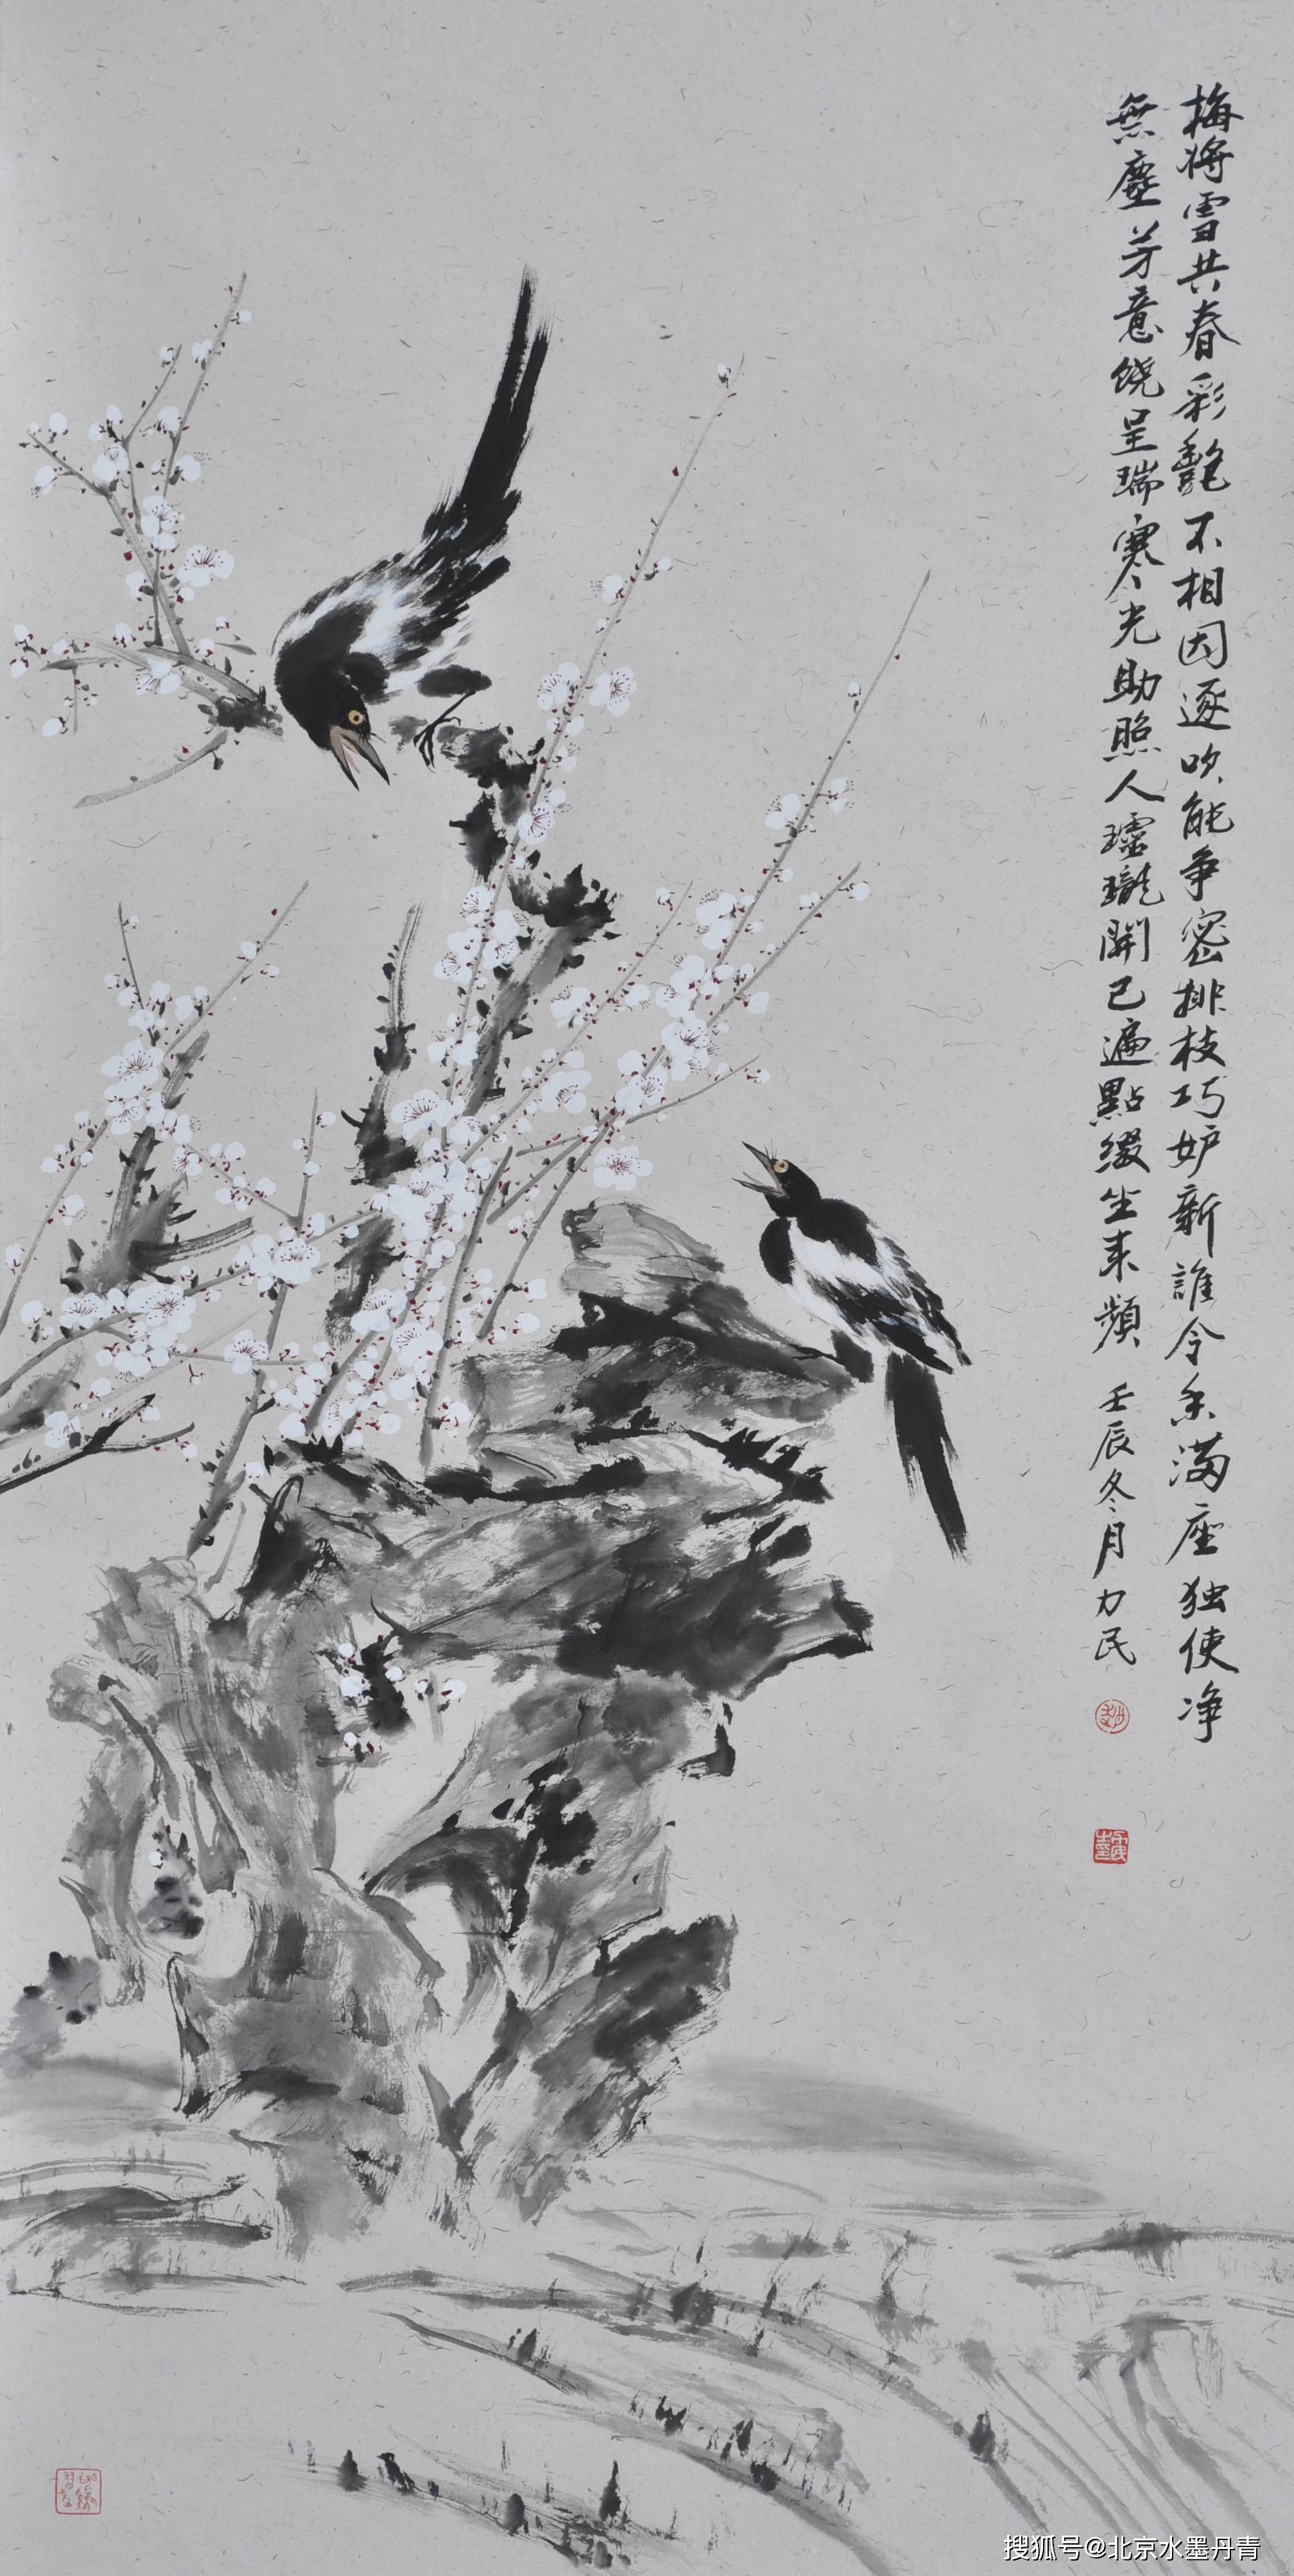 梅将雪共春彩豔不相因逐吹能争密排枝巧妒新誰令香满座独使净
無塵芳意饶呈瑞寒光助照人瓏開已遍點缀坐来頻
壬辰冬月力民
搜狐号@北京水墨丹青